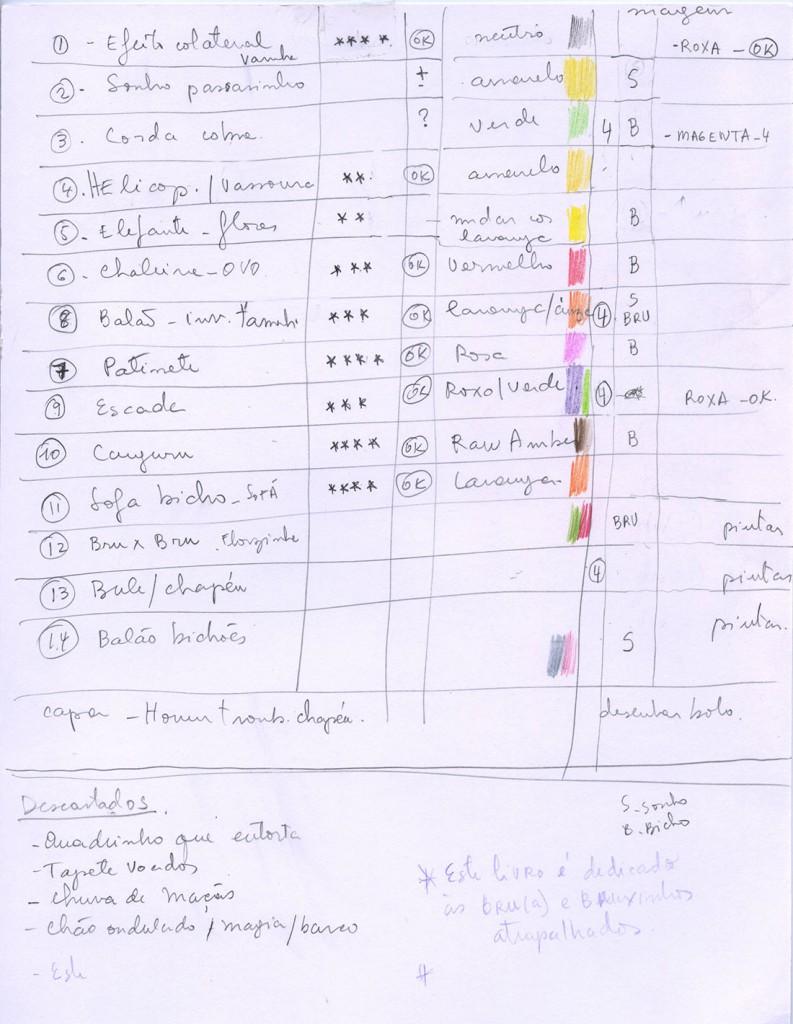 magem
① - Efeito colateral **** OK neutro - ROXA - OK
Varinha
② - Sonho passarinho ± amarelo S
③ - Corda cobra. ? verde 4 B - MAGENTA - 4
④. HElicop. / Vassoura ** OK amarelo
⑤ - Elefante - flores ** - mudar cor B
laranja
⑥ - Chaleira - OVO **** OK Vermelho B
⑧ Balão - inv. tamanho *** OK laranja/cinza ④ S
BRU
⑦ Patinete **** OK Rosa B
⑨ Escada *** OK Roxo/verde ④ ROXA - OK.
⑩ Canguru **** OK Raw Amber B
⑪ Sofa bicho - SOFÁ **** OK Laranja
⑫ Bru x Bru. Florzinha BRU pintar
⑬ Bule / chapéu - ④ pintar
⑭ Balão bichões S pintar.
capa - Homem tromb. chapéu. desenhar bolo.
Descartados.
S - Sonho
B. Bicho
- Quadrinho que entorta
- Tapete voador
- Chuva de maçãs
- Chão ondulado / magia / barco
* Este livro é dedicado
às BRU(A) e BRUxinhos
atrapalhados.
- Este
#